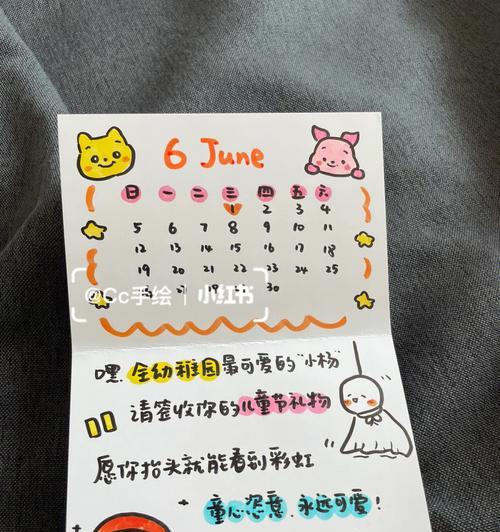 6 June
日 一 二 三 四 五 六
1 2 3 4
5 6 7 8 9 10 11
12 13 14 15 16 17 18
19 20 21 22 23 24 25
26 27 28 29 30
@Cc手绘 小红书
嘿,全幼稚园最可爱的"小杨"
请签收你的儿童节礼物
愿你抬头就能看到彩虹
童心恣意,永远可爱!